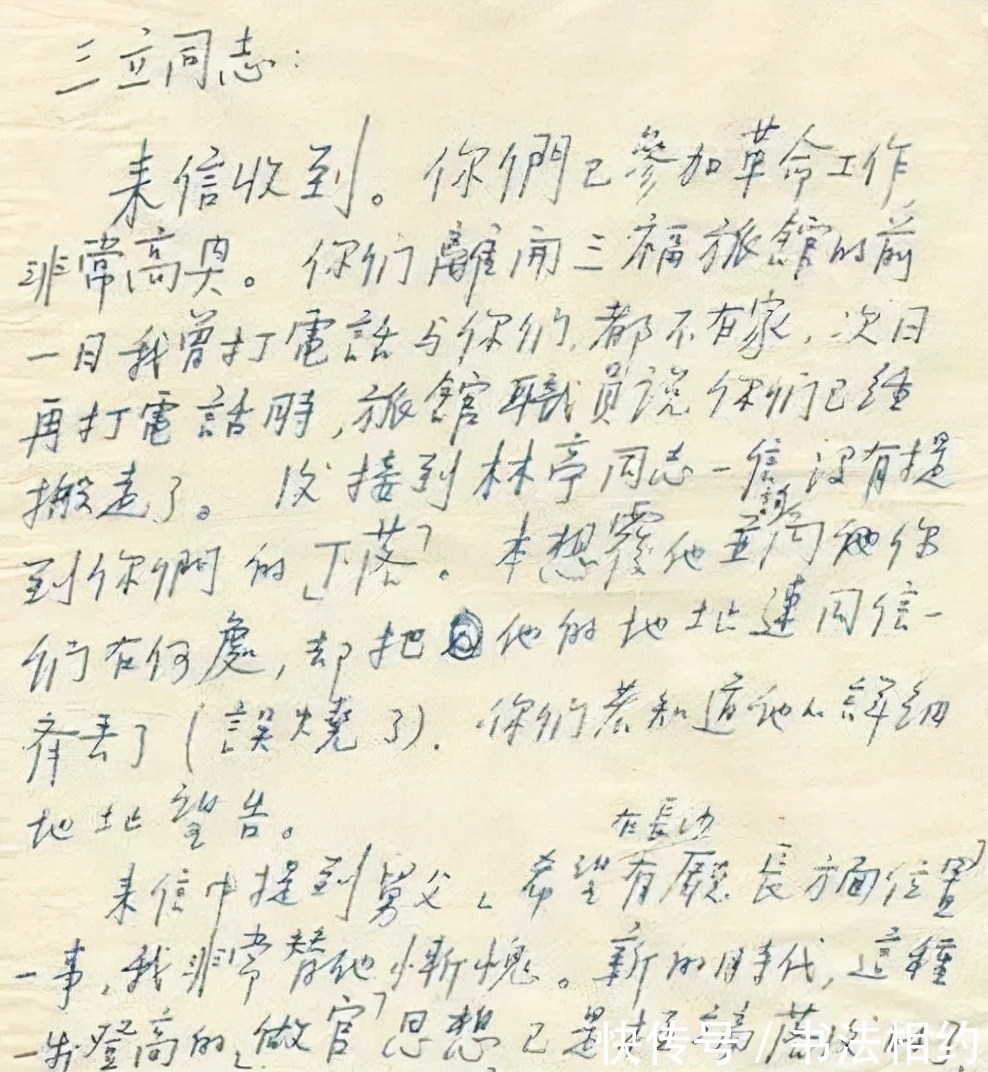 三立同志:
来信收到。你們已參加革命工作,
非常高興。你们離開三福旅館的前
一日我曾打電話与你们,都不在家,次日
再打電話時,旅館職員说你们已经
搬走了。後接到林亭同志一信,没有提
到你們的「下落」。本想覆他並询问他你
們在何處,却把他的地址連同信一
齊丢了(誤燒了)。你们若知道他的詳細
地址望告。
在長沙
来信中提到舅父「希望有廳長方面位置」
一事,我非常替他慚愧。新的時代,這種
一步登高的「做官」思想已是極端落後的了,
快传号/书法相约